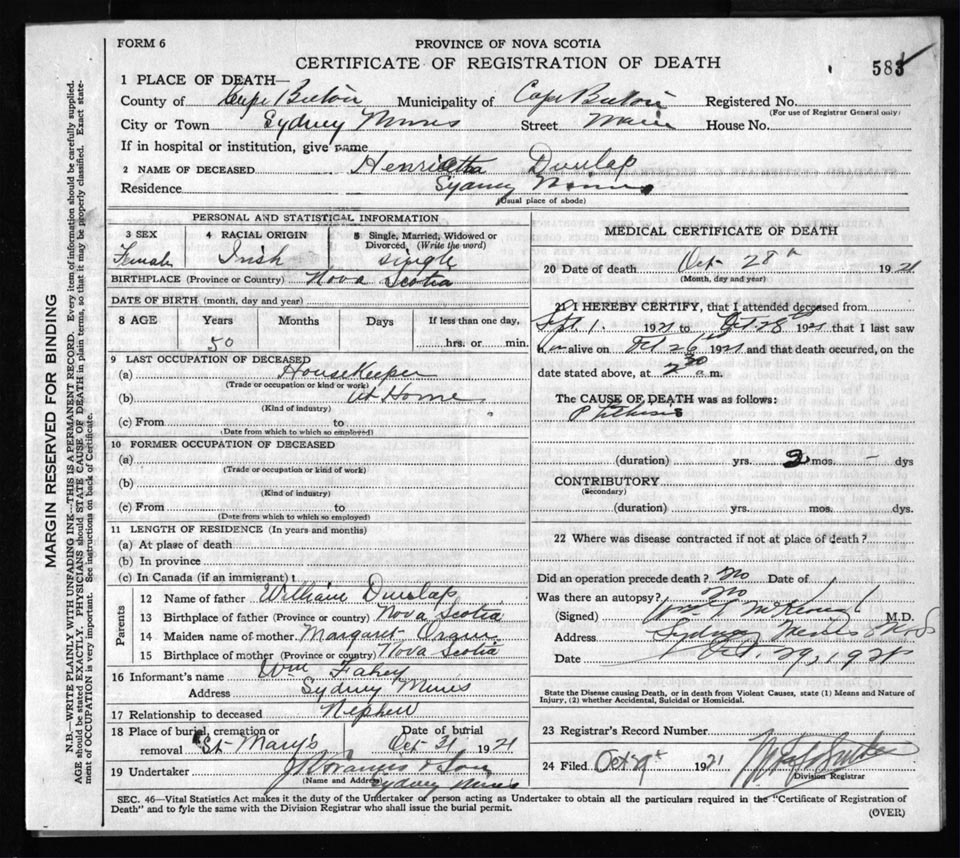 FORM 6
PROVINCE OF NOVA SCOTIA
CERTIFICATE OF REGISTRATION OF DEATH
583
1 PLACE OF DEATH—
County of Cape Breton Municipality of Cape Breton Registered No.
(For use of Registrar General only)
City or Town Sydney Mines Street Main House No.
If in hospital or institution, give name
2 NAME OF DECEASED Henrietta Dunlap
Residence Sydney Mines
(Usual place of abode)
PERSONAL AND STATISTICAL INFORMATION
3 SEX Female
4 RACIAL ORIGIN Irish
5 Single, Married, Widowed or Divorced (Write the word) Single
BIRTHPLACE (Province or Country) Nova Scotia
DATE OF BIRTH (month, day and year)
8 AGE Years 50 Months Days If less than one day, hrs. or min.
9 LAST OCCUPATION OF DECEASED
(a) Housekeeper
(Trade or occupation or kind of work)
(b) At Home
(Kind of industry)
(c) From to
(Date from which to which so employed)
10 FORMER OCCUPATION OF DECEASED
(a)
(Trade or occupation or kind of work)
(b)
(Kind of industry)
(c) From to
(Date from which to which so employed)
11 LENGTH OF RESIDENCE (In years and months)
(a) At place of death
(b) In province
(c) In Canada (if an immigrant)
Parents
12 Name of father William Dunlap
13 Birthplace of father (Province or country) Nova Scotia
14 Maiden name of mother Margaret
15 Birthplace of mother (Province or country) Nova Scotia
16 Informant's name Wm Fahey
Address Sydney Mines
17 Relationship to deceased Nephew
18 Place of burial, cremation or removal St Mary's Date of burial Oct 31 1921
19 Undertaker & Son
(Name and Address) Sydney Mines
MEDICAL CERTIFICATE OF DEATH
20 Date of death Oct 28th 1921
(Month, day and year)
21 I HEREBY CERTIFY, that I attended deceased from
Sept. 1. 1921 to Oct 28th 1921 that I last saw
h er alive on Oct 26 1921 and that death occurred, on the
date stated above, at 2 30 a.m.
The CAUSE OF DEATH was as follows:
Phthisis
(duration) yrs. 2 mos. – dys
CONTRIBUTORY
(Secondary)
(duration) yrs. mos. dys.
22 Where was disease contracted if not at place of death?
Did an operation precede death? No Date of
Was there an autopsy? No
(Signed) M.D.
Address Sydney Mines
Date Oct. 29, 1921
State the Disease causing Death, or in death from Violent Causes, state (1) Means and Nature of
Injury, (2) whether Accidental, Suicidal or Homicidal.
23 Registrar's Record Number
24 Filed Oct 1921
Division Registrar
SEC. 46—Vital Statistics Act makes it the duty of the Undertaker or person acting as Undertaker to obtain all the particulars required in the "Certificate of Registration of
Death" and to fyle the same with the Division Registrar who shall issue the burial permit.
(OVER)
MARGIN RESERVED FOR BINDING
N.B.—WRITE PLAINLY WITH UNFADING INK—THIS IS A PERMANENT RECORD. Every item of information should be carefully supplied.
AGE should be stated EXACTLY. PHYSICIANS should STATE CAUSE OF DEATH in plain terms, so that it may be properly classified. Exact state-
ment of OCCUPATION is very important. See instructions on back of Certificate.